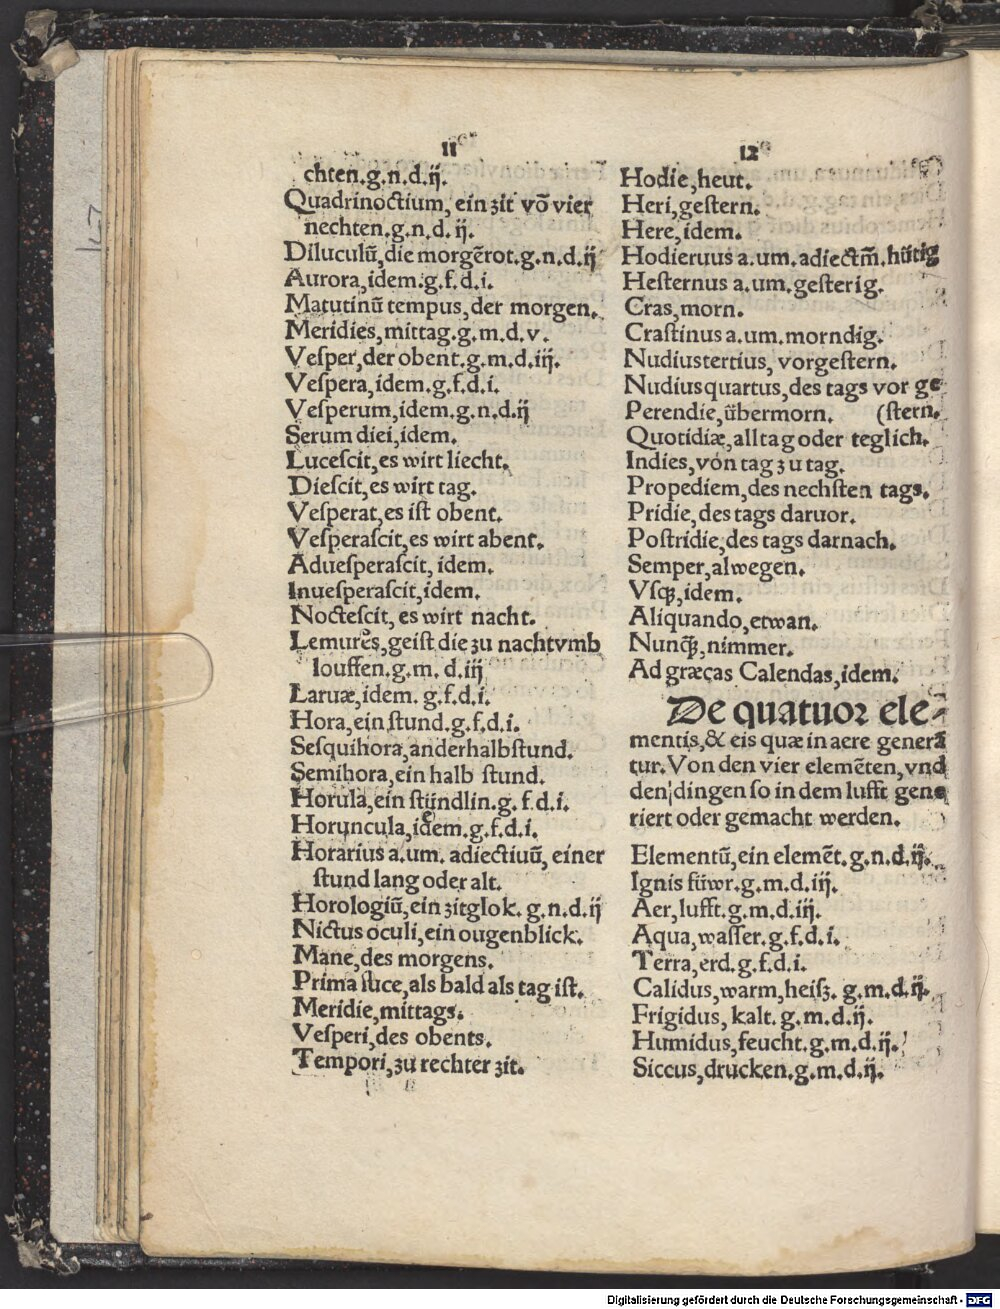 11
chten.g.n.d.ij.
Quadrinoctium, ein zit vō vier
nechten.g.n.d.ij.
Diluculū, die morgērot.g.n.d.ij
Aurora, idem.g.f.d.i.
Matutinū tempus, der morgen.
Meridies, mittag.g.m.d.v.
Veſper, der obent.g.m.d.iij.
Veſpera, idem.g.f.d.i.
Veſperum, idem.g.n.d.ij
Serum diei, idem.
Luceſcit, es wirt liecht.
Dieſcit, es wirt tag.
Veſperat, es iſt obent.
Veſperaſcit, es wirt abent.
Adueſperaſcit, idem.
Inueſperaſcit, idem.
Nocteſcit, es wirt nacht.
Lemures, geiſt die zu nacht vmb
louffen.g.m.d.iij
Laruæ, idem. g.f.d.i.
Hora, ein ſtund.g.f.d.i.
Seſquihora, anderhalb ſtund.
Semihora, ein halb ſtund.
Horula, ein ſtündlin.g.f.d.i.
Horuncula, idem.g.f.d.i.
Horarius a.um. adiectiuū, einer
ſtund lang oder alt.
Horologiū, ein zitglok. g.n.d.ij
Nictus oculi, ein ougenblick.
Mane, des morgens.
Prima luce, als bald als tag iſt.
Meridie, mittags.
Veſperi, des obents.
Tempori, zu rechter zit.
12
Hodie, heut.
Heri, geſtern.
Here, idem.
Hodieruus a.um.adiectm̄.hütig
Heſternus a.um.geſterig.
Cras, morn.
Craſtinus a.um.morndig.
Nudiustertius, vorgeſtern.
Nudiusquartus, des tags vor ge
Perendie, übermorn. (ſtern.
Quotidiæ, all tag oder teglich.
Indies, von tag zu tag.
Propediem, des nechſten tags.
Pridie, des tags daruor.
Poſtridie, des tags darnach.
Semper, alwegen.
Vſqꝫ, idem.
Aliquando, etwan.
Nunqꝫ, nimmer.
Ad græcas Calendas, idem.
De quatuor ele-
mentis, & eis quæ in aere generā
tur. Von den vier elemēten, vnd
den dingen ſo in dem lufft gene
riert oder gemacht werden.
Elementū, ein elemēt.g.n.d.ij.
Ignis füwr.g.m.d.iij.
Aer, lufft.g.m.d.iij.
Aqua, waſſer.g.f.d.i.
Terra, erd.g.f.d.i.
Calidus, warm, heiſz. g.m.d.ij.
Frigidus, kalt. g.m.d.ij.
Humidus, feucht.g.m.d.ij.
Siccus, drucken.g.m.d.ij.
Digitalisierung gefördert durch die Deutsche Forschungsgemeinschaft - DFG